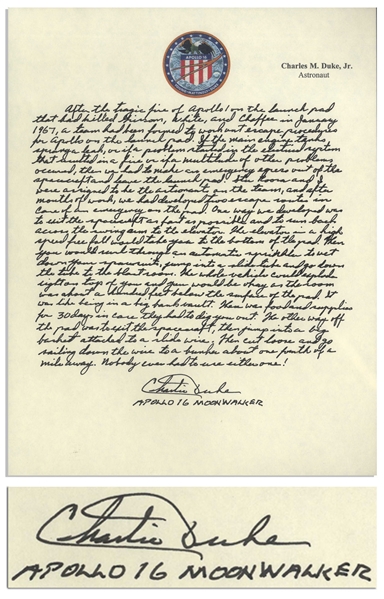 APOLLO 16
Charles M. Duke, Jr.
Astronaut
After the tragic fire of Apollo 1 on the launch pad
that had killed Grissom, White, and Chaffee in January
1967, a team had been formed to work out escape procedures
for Apollo on the launch pad. If the main engine tanks
sprung a leak, or if a problem resulted in the electrical system
that resulted in a fire or if a multitude of other problems
occured, then we had to make an emergency egress out of the
spacecraft and leave the launch pad. and I
were assigned to be the astronauts on the team, and after
months of work, we had developed two escape routes in
case of an emergency on the pad. One way we developed was
to exit the spacecraft as fast as possible and to run back
across the swing arm to the elevator. The elevator in a high
speed free fall would take you to the bottom of the pad. Then
you would run through an automatic sprinkler to wet
down your spacesuit, jump into a slide tube and go down
the tube to the blast room. The whole vehicle could explode
right on top of you and you would be okay as the room
was about a hundred feet below the surface of the pad. It
was like being in a big bank vault. There was food and supplies
for 30 days in case they had to dig you out. The other way off
the pad was to exit the spacecraft, then jump into a big
basket attached to a slide wire, then cut loose and go
sailing down the wire to a bunker about one fourth of a
mile away. Nobody ever had to use either one!
Charlie Duke
APOLLO 16 MOONWALKER
Charlie Duke
APOLLO 16 MOONWALKER